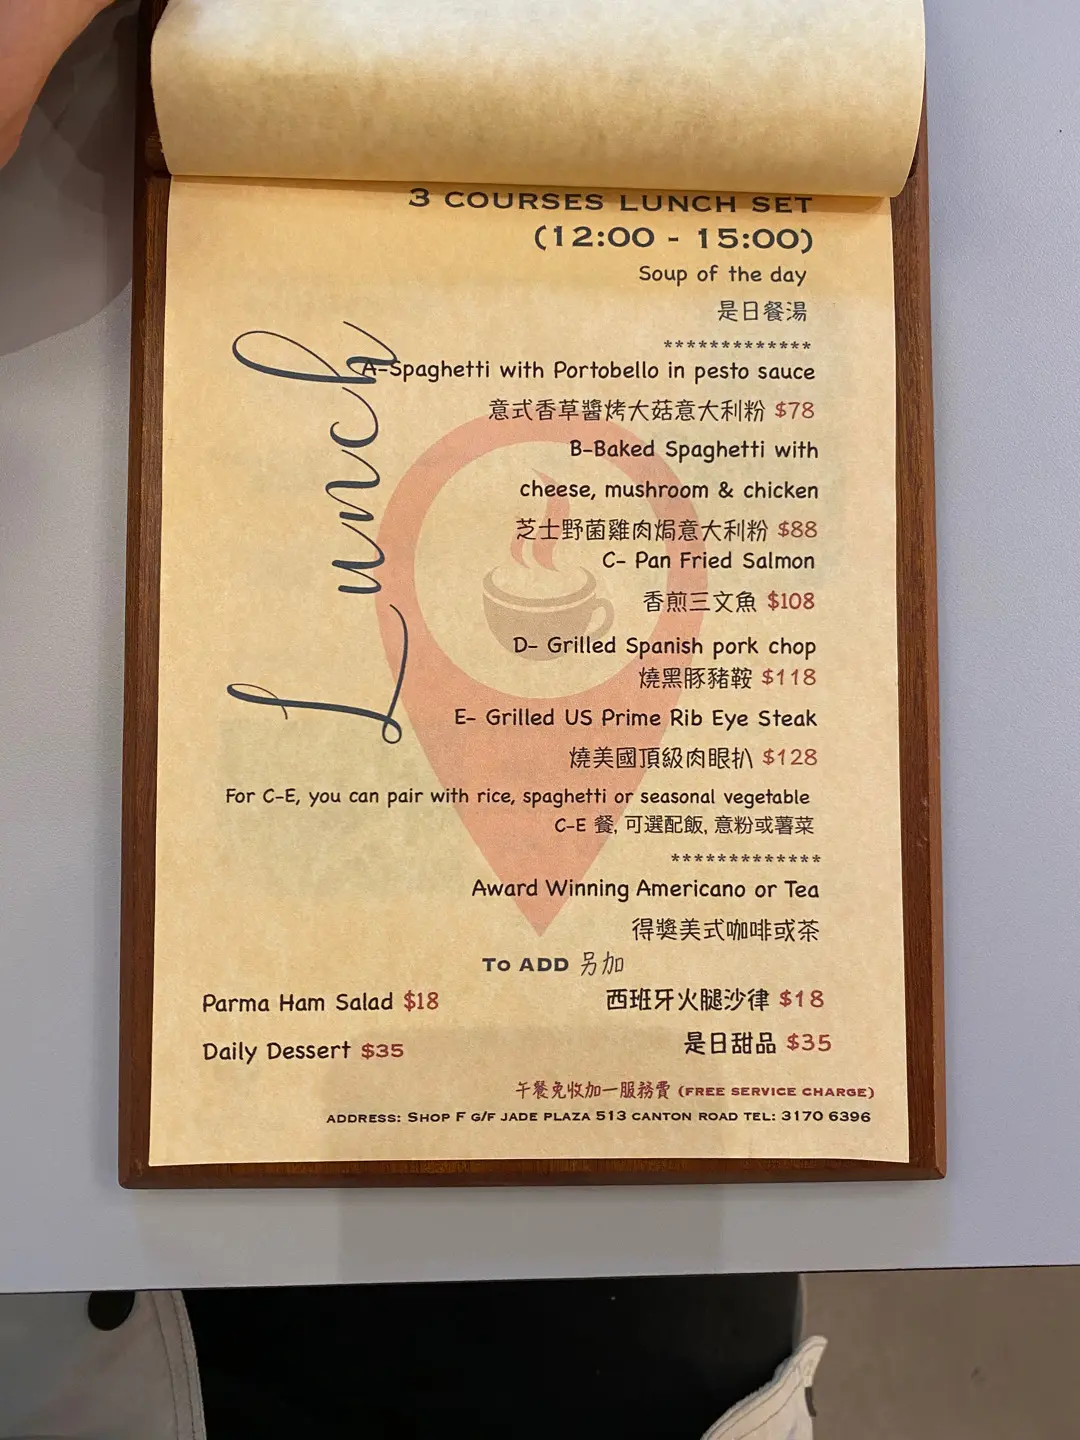 3 COURSES LUNCH SET
(12:00 - 15:00)
Soup of the day
是日餐湯
*************
Lunch
A-Spaghetti with Portobello in pesto sauce
意式香草醬烤大菇意大利粉 $78
B-Baked Spaghetti with
cheese, mushroom & chicken
芝士野菌雞肉焗意大利粉 $88
C- Pan Fried Salmon
香煎三文魚 $108
D- Grilled Spanish pork chop
燒黑豚豬鞍 $118
E- Grilled US Prime Rib Eye Steak
燒美國頂級肉眼扒 $128
For C-E, you can pair with rice, spaghetti or seasonal vegetable
C-E 餐, 可選配飯, 意粉或薯菜
*************
Award Winning Americano or Tea
得獎美式咖啡或茶
To ADD 另加
Parma Ham Salad $18 西班牙火腿沙律 $18
Daily Dessert $35 是日甜品 $35
午餐免收加一服務費 (FREE SERVICE CHARGE)
ADDRESS: SHOP F G/F JADE PLAZA 513 CANTON ROAD TEL: 3170 6396